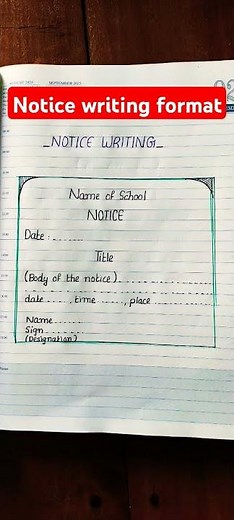 SEPTEMBER
Notice writing format
NOTICE WRITING
Name of School
NOTICE
Date: ........
Title
(Body of the notice)................
date ....., time ....., place ............
Name........
Sign..........
(Designation)